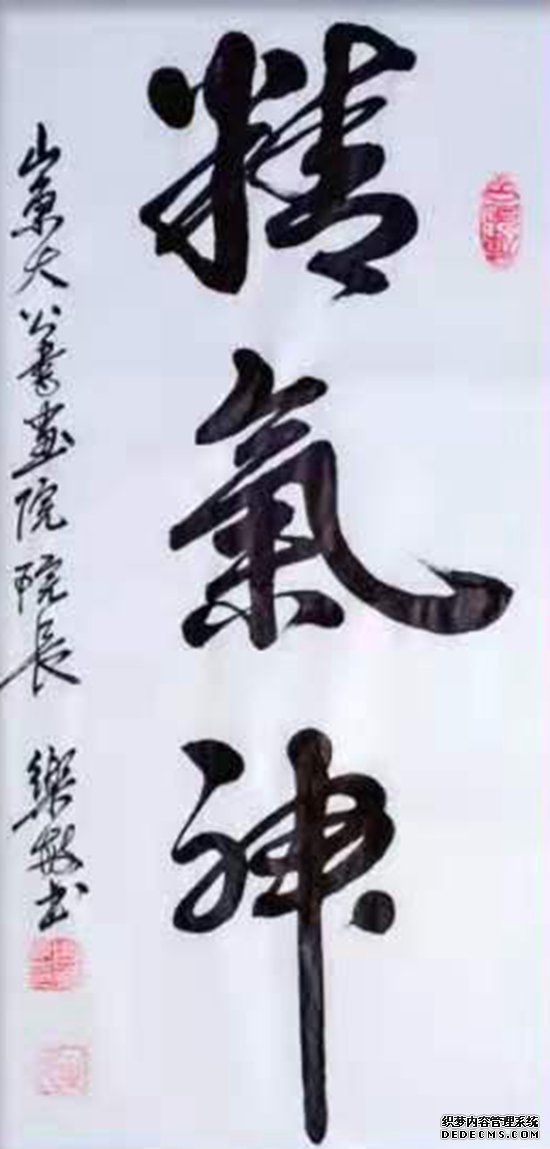 精氣神
山東大公書画院院長 樂敏书
织梦内容管理系统
DEDECMS.COM